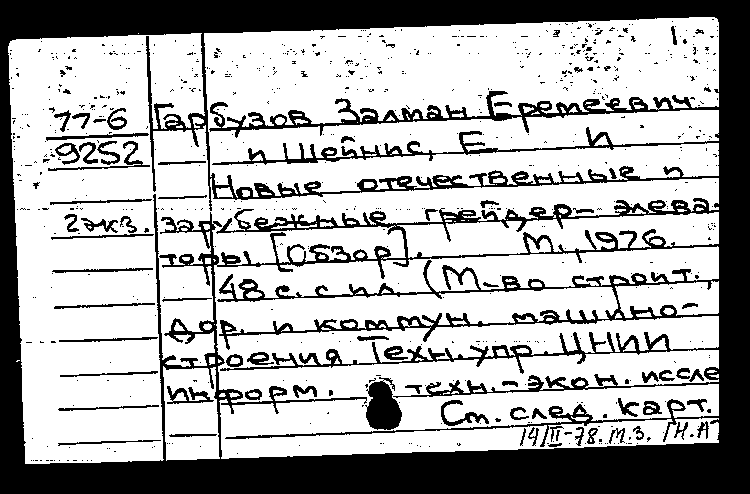 1.
77-6 Гарбузов, Залман Еремеевич
9252 и Шейнис, Е И
Новые отечественные и
2 экз. зарубежные грейдер-элева-
торы. [Обзор]. М., 1976.
48 с. с ил. (М-во строит.,
дор. и коммун. машино-
строения. Техн. упр. ЦНИИ
информ. техн.-экон. иссле
См. след. карт.
14/III-78. М.З. /Н.АТ